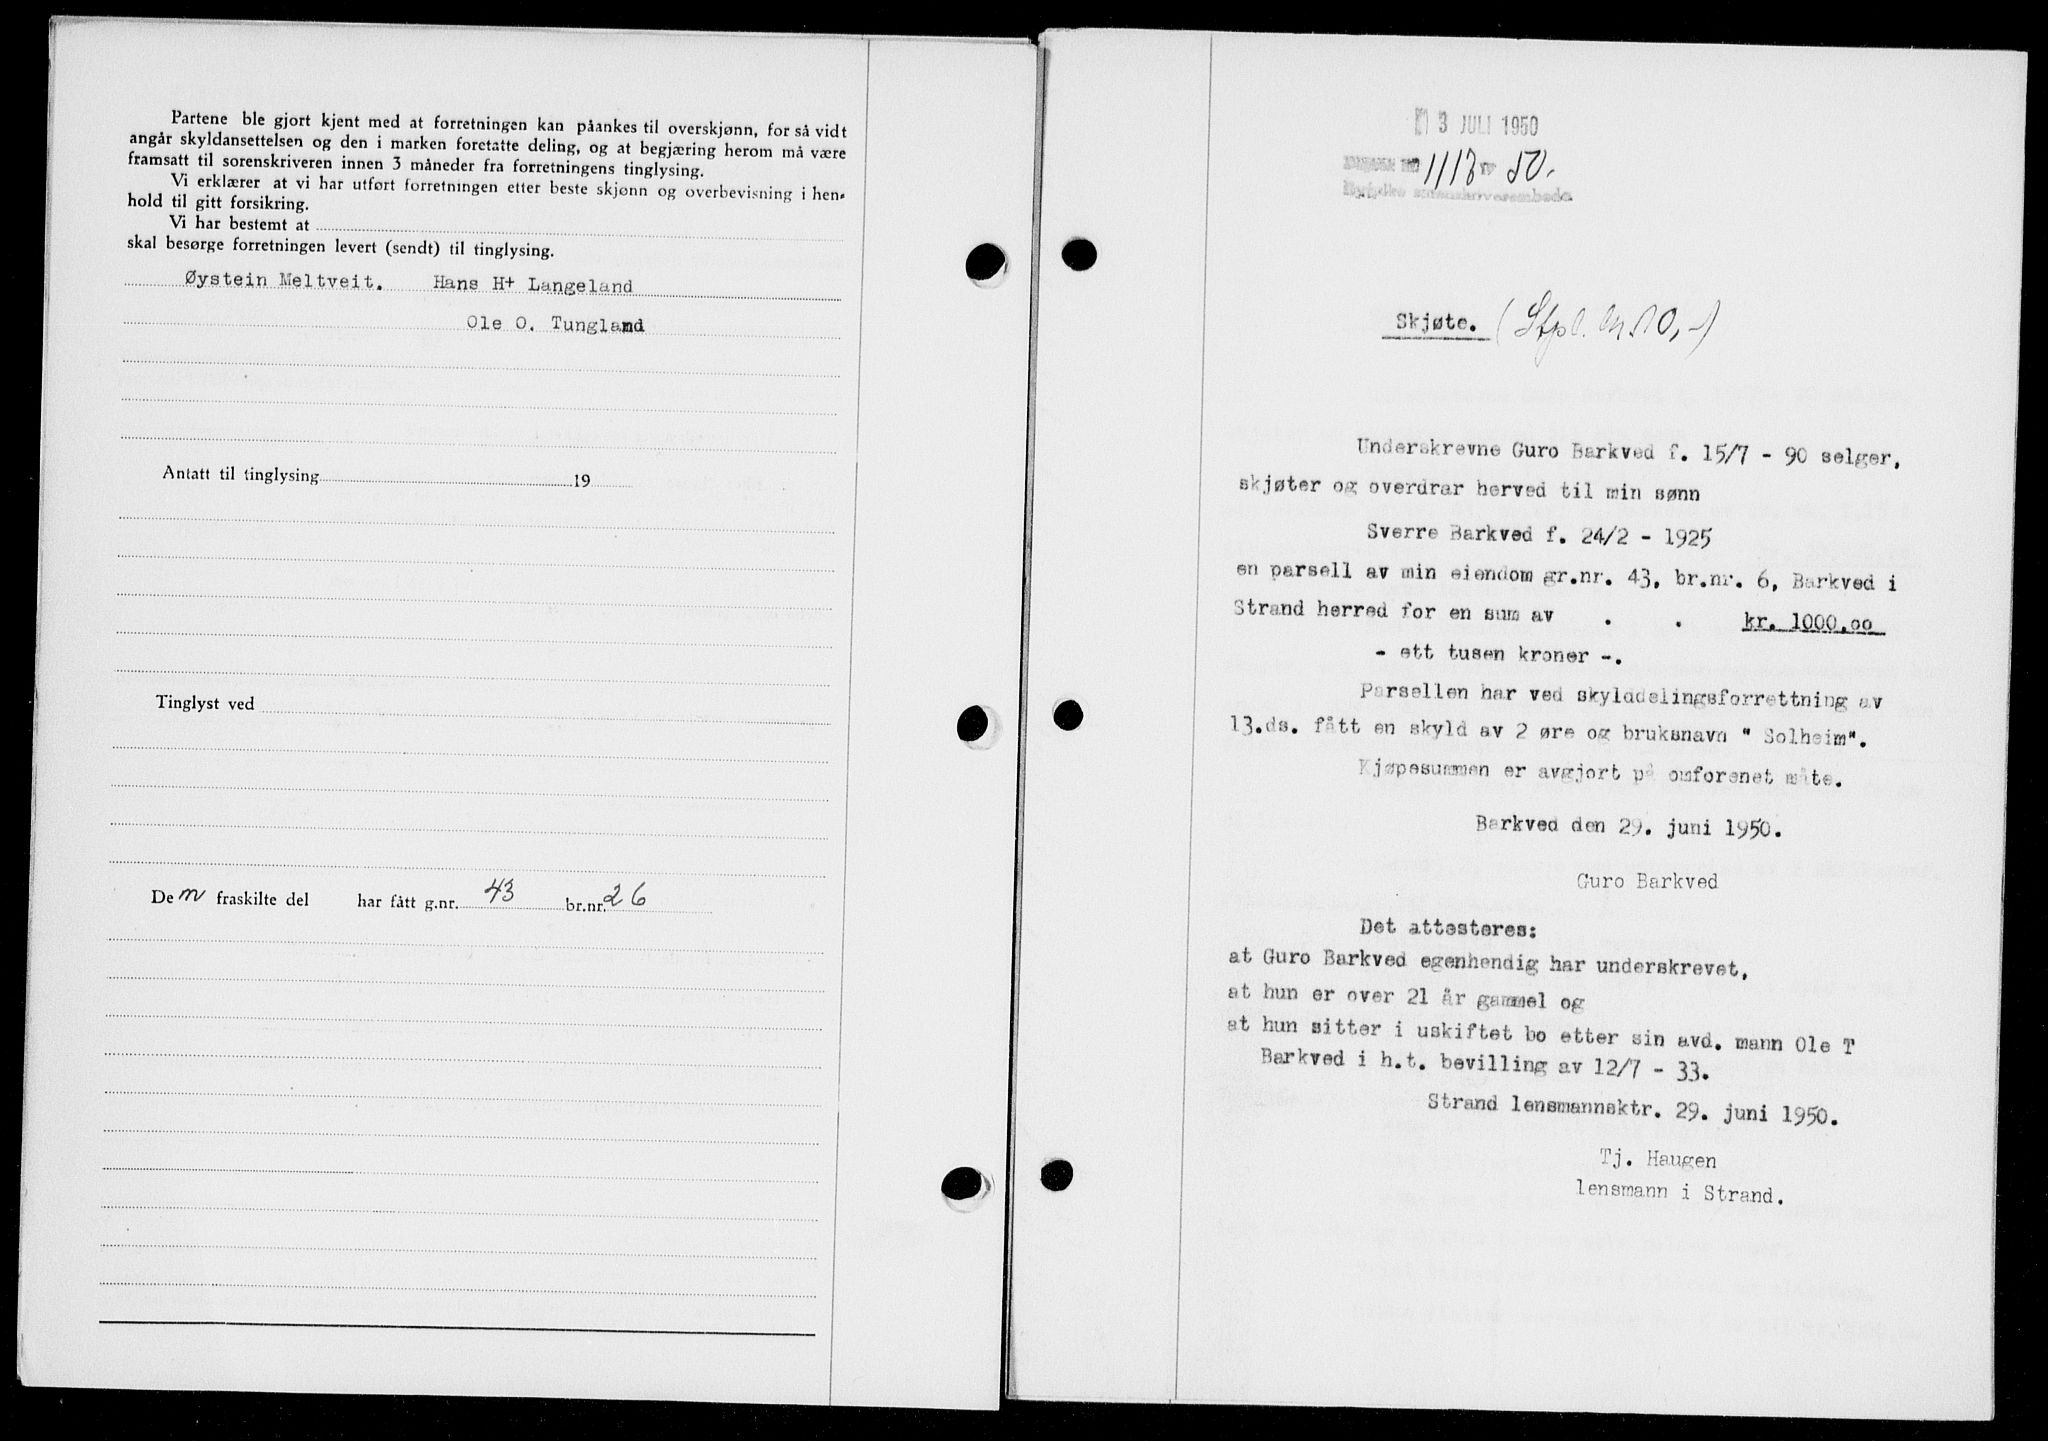 Partene ble gjort kjent med at forretningen kan påankes til overskjønn, for så vidt
angår skyldansettelsen og den i marken foretatte deling, og at begjæring herom må være
framsatt til sorenskriveren innen 3 måneder fra forretningens tinglysing.
Vi erklærer at vi har utført forretningen etter beste skjønn og overbevisning i hen-
hold til gitt forsikring.
Vi har bestemt at
skal besørge forretningen levert (sendt) til tinglysing.
Øystein Meltveit. Hans H+ Langeland
Ole O. Tungland
Antatt til tinglysing 19
Tinglyst ved
Dem fraskilte del har fått g.nr. 43 br.nr. 26
3 JULI 1950
1118 50.
Skjøte. (Stpl. 10,-)
Underskrevne Guro Barkved f. 15/7 - 90 selger,
skjøter og overdrar herved til min sønn
Sverre Barkved f. 24/2 - 1925
en parsell av min eiendom gr.nr. 43, br.nr. 6, Barkved i
Strand herred for en sum av . . kr. 1000.oo
- ett tusen kroner -.
Parsellen har ved skylddelingsforrettning av
13.ds. fått en skyld av 2 øre og bruksnavn " Solheim".
Kjøpesummen er avgjort på omforenet måte.
Barkved den 29. juni 1950.
Guro Barkved
Det attesteres:
at Guro Barkved egenhendig har underskrevet,
at hun er over 21 år gammel og
at hun sitter i uskiftet bo etter sin avd. mann Ole T
Barkved i h.t. bevilling av 12/7 - 33.
Strand lensmannsktr. 29. juni 1950.
Tj. Haugen
lensmann i Strand.